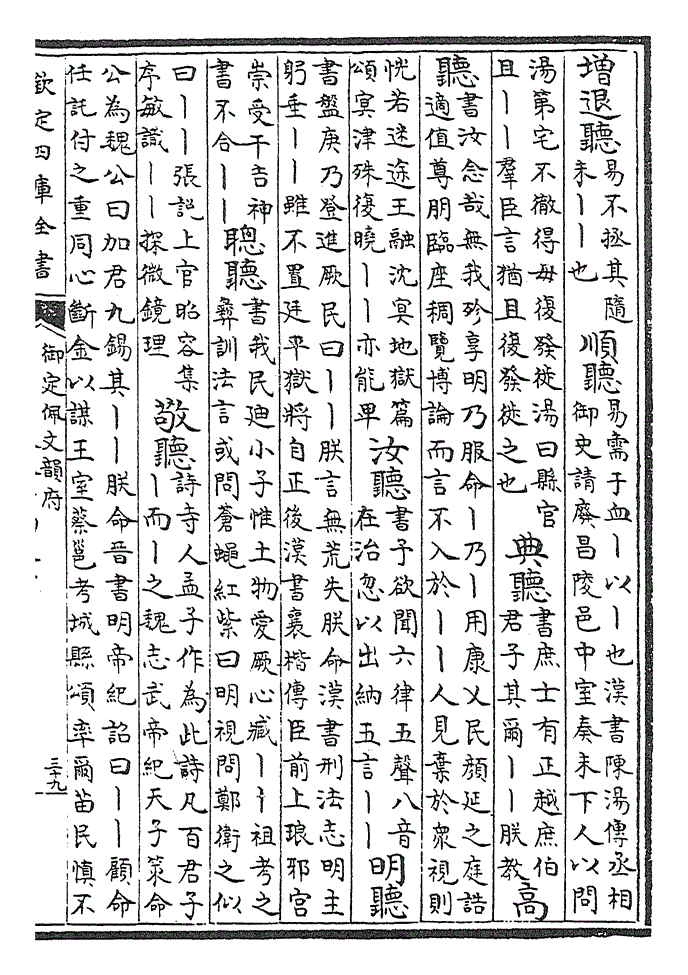 增退聽易不拯其隨未丨丨也順聽易需于血丨以丨也漢書陳湯傳丞相御史請廢昌陵邑中室奏未下人以問
湯第宅不徹得毋復發徙湯曰縣官且丨丨羣臣言猶且復發徙之也典聽書庶士有正越庶伯君子其爾丨丨朕教高
聽書汝念哉無我殄享明乃服命丨乃丨用康乂民顔延之庭誥適值尊朋臨座稠覽博論而言不入於丨丨人見棄於衆視則
恍若迷途王融沈冥地獄篇頌冥津殊復曉丨丨亦能畢汝聽書予欲聞六律五聲八音在治忽以出納五言丨丨明聽
書盤庚乃登進厥民曰丨丨朕言無荒失朕命漢書刑法志明主躬垂丨丨雖不置廷平獄將自正後漢書襄楷傳臣前上琅邪宮
崇受干吉神書不合丨丨聰聽書我民迪小子惟土物愛厥心臧丨丨祖考之彝訓法言或問蒼蠅紅紫曰明視問鄭衛之似
曰丨丨張説上官昭容集序敏識丨丨探微鏡理敬聽詩寺人孟子作為此詩凡百君子丨而丨之魏志武帝紀天子策命
公為魏公曰加君九錫其丨丨朕命晉書明帝紀詔曰丨丨顧命任託付之重同心斷金以謀王室蔡邕考城縣頌率爾苗民慎不
欽定四庫全書
御定佩文韻府
三十九